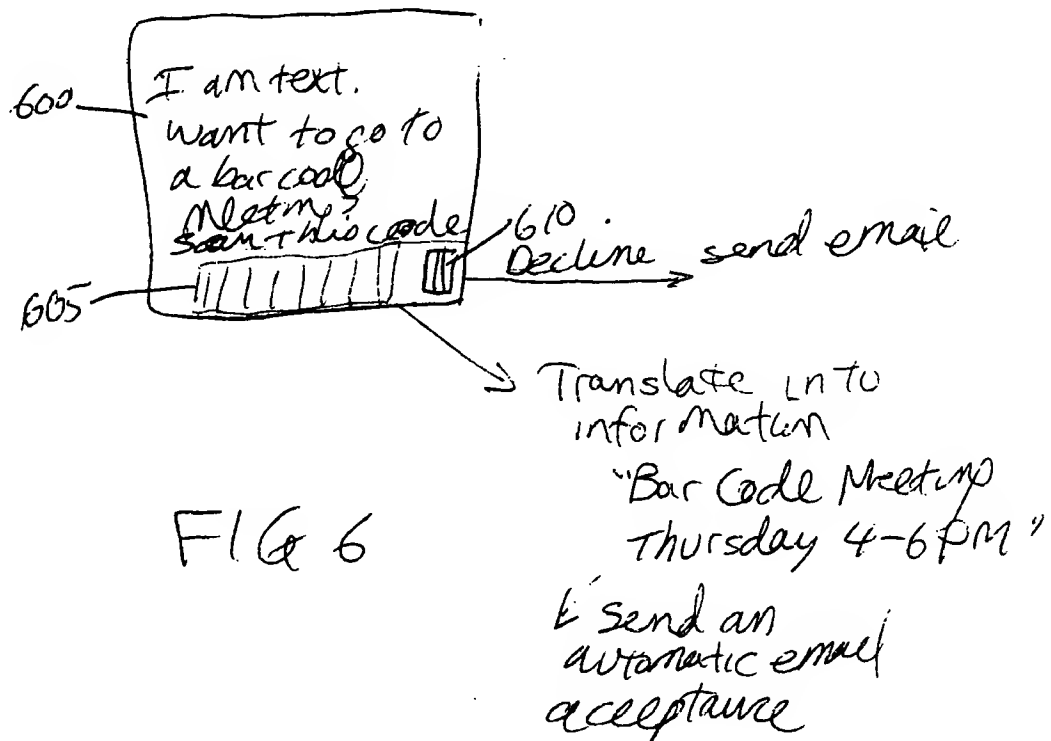 600
I am text.
want to go to
a bar code
Meeting?
scan this code
605
610
Decline
send email
Translate into
information
"Bar Code Meeting
Thursday 4-6 PM"
& send an
automatic email
acceptance
FIG 6